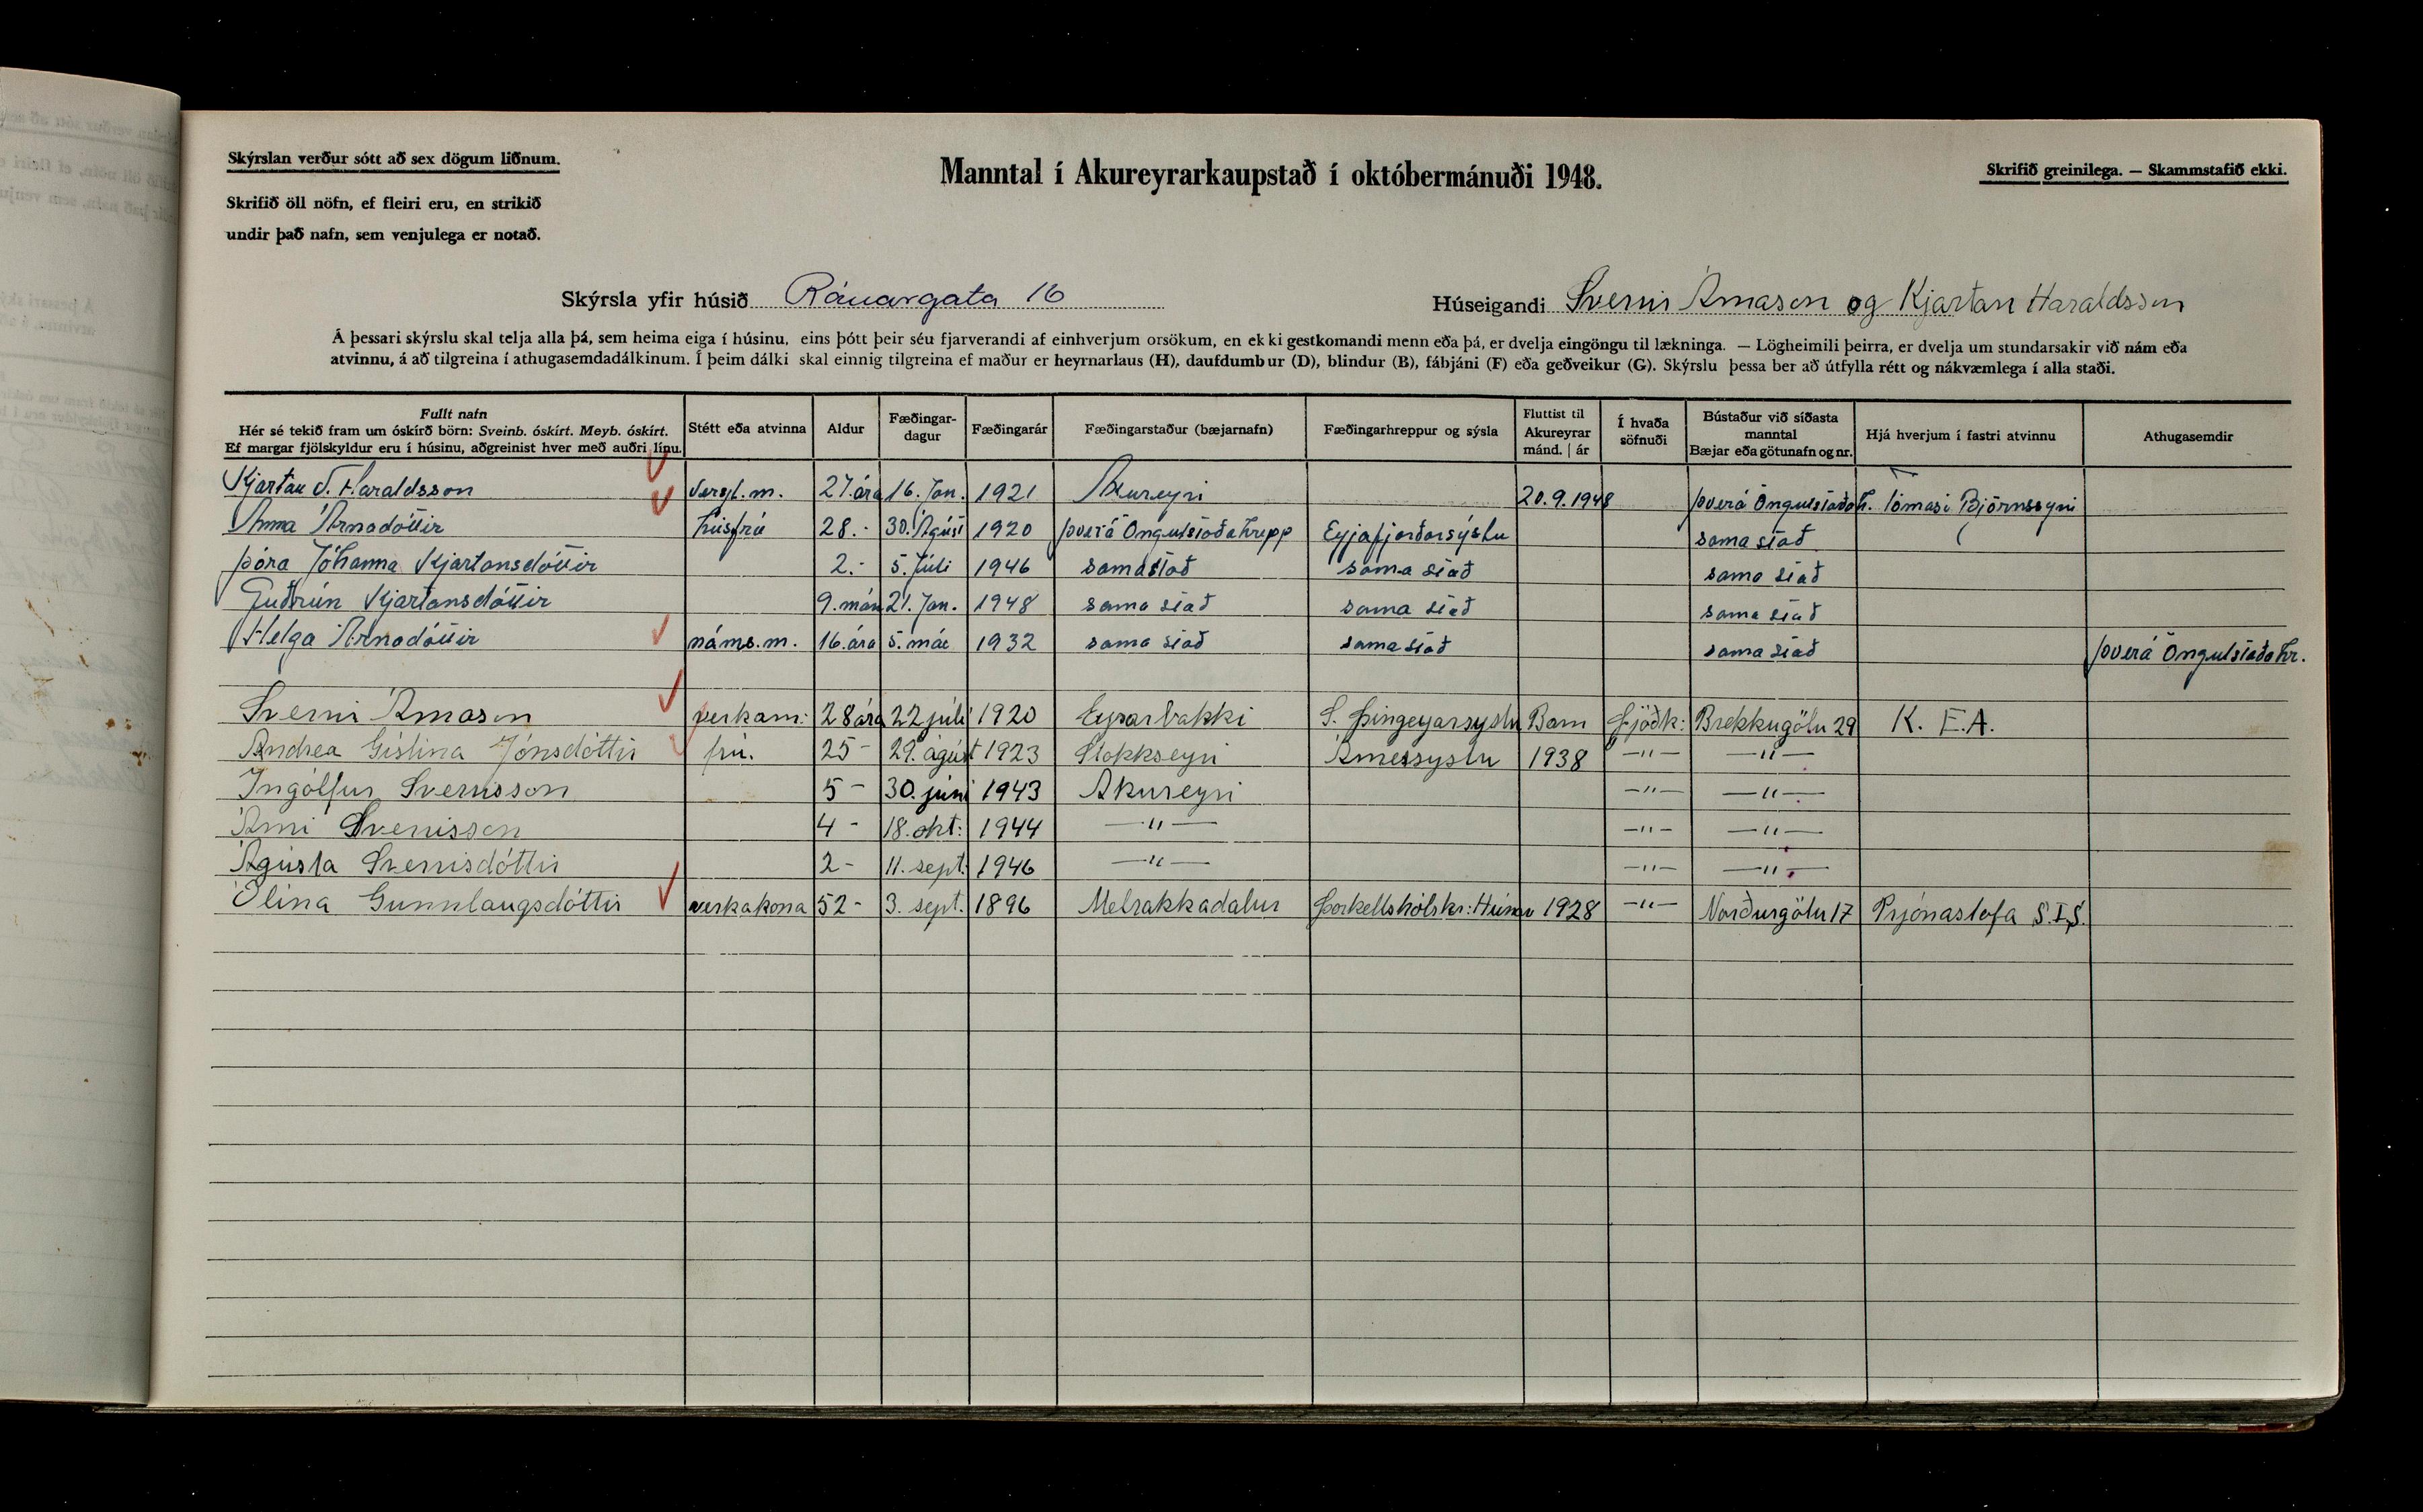 Skýrslan verður sótt að sex dögum liðnum.
Skrifið öll nöfn, ef fleiri eru, en strikið
undir það nafn, sem venjulega er notað.
Manntal í Akureyrarkaupstað í októbermánuði 1948.
Skrifið greinilega. — Skammstafið ekki.
Skýrsla yfir húsið Ránargata 16
Húseigandi Sverrir Árnason og Kjartan Haraldsson
Á þessari skýrslu skal telja alla þá, sem heima eiga í húsinu, eins þótt þeir séu fjarverandi af einhverjum orsökum, en ekki gestkomandi menn eða þá, er dvelja eingöngu til lækninga. — Lögheimili þeirra, er dvelja um stundarsakir við nám eða
atvinnu, á að tilgreina í athugasemdadálkinum. Í þeim dálki skal einnig tilgreina ef maður er heyrnarlaus (H), daufdumbur (D), blindur (B), fábjáni (F) eða geðveikur (G). Skýrslu þessa ber að útfylla rétt og nákvæmlega í alla staði.
Fullt nafn
Hér sé tekið fram um óskírð börn: Sveinb. óskírt. Meyb. óskírt.
Ef margar fjölskyldur eru í húsinu, aðgreinist hver með auðri línu.
Stétt eða atvinna
Aldur
Fæðingar-
dagur
Fæðingarár
Fæðingarstaður (bæjarnafn)
Fæðingarhreppur og sýsla
Fluttist til
Akureyrar
mánd. | ár
Í hvaða
söfnuði
Bústaður við síðasta
manntal
Bæjar eða götunafn og nr.
Hjá hverjum í fastri atvinnu
Athugasemdir
Kjartan Haraldsson 27. ára 16. Jan. 1921 Akureyri 20.9.1948 Þverá Öngulstaðah. Tómasi Björnssyni
Anna Árnadóttir húsfrú 28.- 30. Ágúst 1920 Þverá Öngulstaðahrepp Eyjafjarðarsýslu sama stað
Þóra Jóhanna Kjartansdóttir 2.- 5. Júlí 1946 sama stað sama stað sama stað
Guðrún Kjartansdóttir 9. mán 21. Jan. 1948 sama stað sama stað sama stað
Helga Árnadóttir náms.m. 16. ára 5. maí 1932 sama stað sama stað sama stað Þverá Öngulstaðahr.
Sverrir Árnason verkam: 28 ára 22 júlí 1920 Eyrarbakki S. Þingeyarsyslu Barn Þjóðk: Brekkugötu 29 K. E. A.
Andrea Gíslína Jónsdóttir frú. 25 - 29. ágúst 1923 Stokkseyri Árnessyslu 1938 —"— —"—
Ingólfur Sverrisson 5 - 30. júní 1943 Akureyri —"— —"—
Árni Sverrisson 4 - 18. okt: 1944 —"— —"— —"—
Ágústa Sverrisdóttir 2 - 11. sept. 1946 —"— —"— —"—
Elína Gunnlaugsdóttir verkakona 52 - 3. sept. 1896 Melrakkadalur Þorkellshólshr: Húnav 1928 —"— Norðurgötu 17 Prjónastofa S.Í.S.